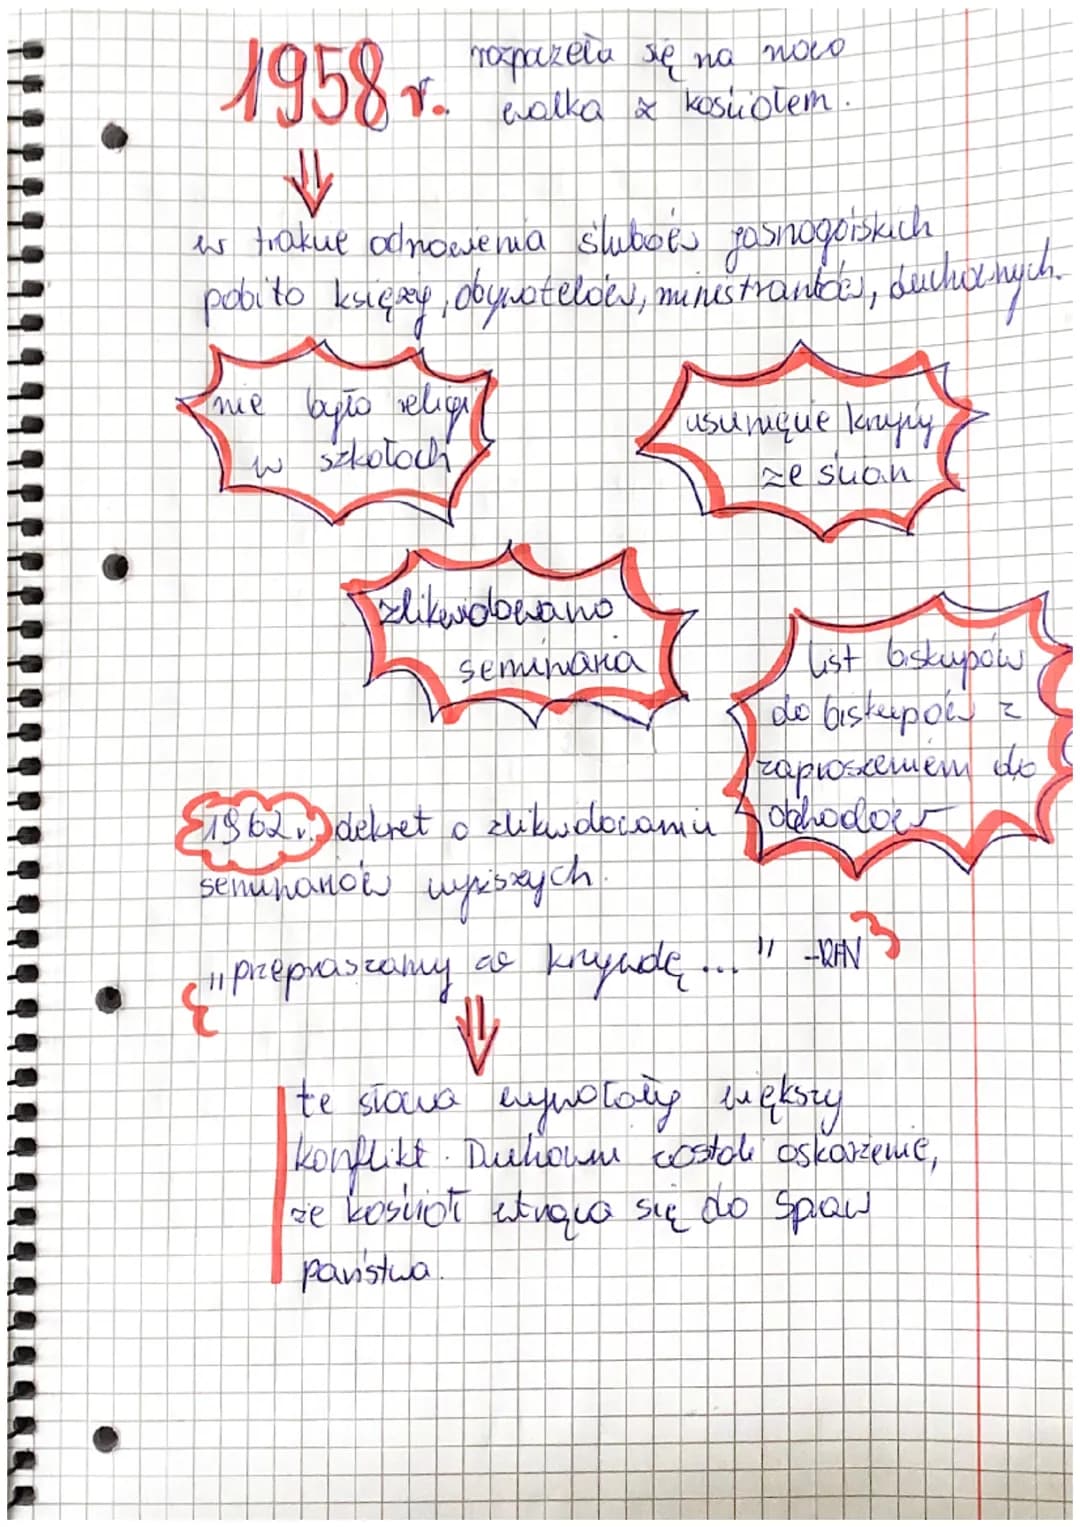 1958 r. rozpoczęła się na nowo
walka z kościołem.
w trakcie odnowienia ślubów jasnogórskich
pobito księży, obywatelów, ministrantów, duchownych.
nie było religi
w szkołach
usunięcie krzyży
ze ścian
zlikwidowano
seminaria
list biskupów
do biskupów z
zaproszeniem do
obchodów
1962 r. dekret o zlikwidowaniu
seminariów wyższych.
„przepraszamy za krzywdę ..." - RFN
te słowa wywołały większy
konflikt. Duchowni zostali oskarżenie,
że kościół wtrąca się do spraw
państwa.